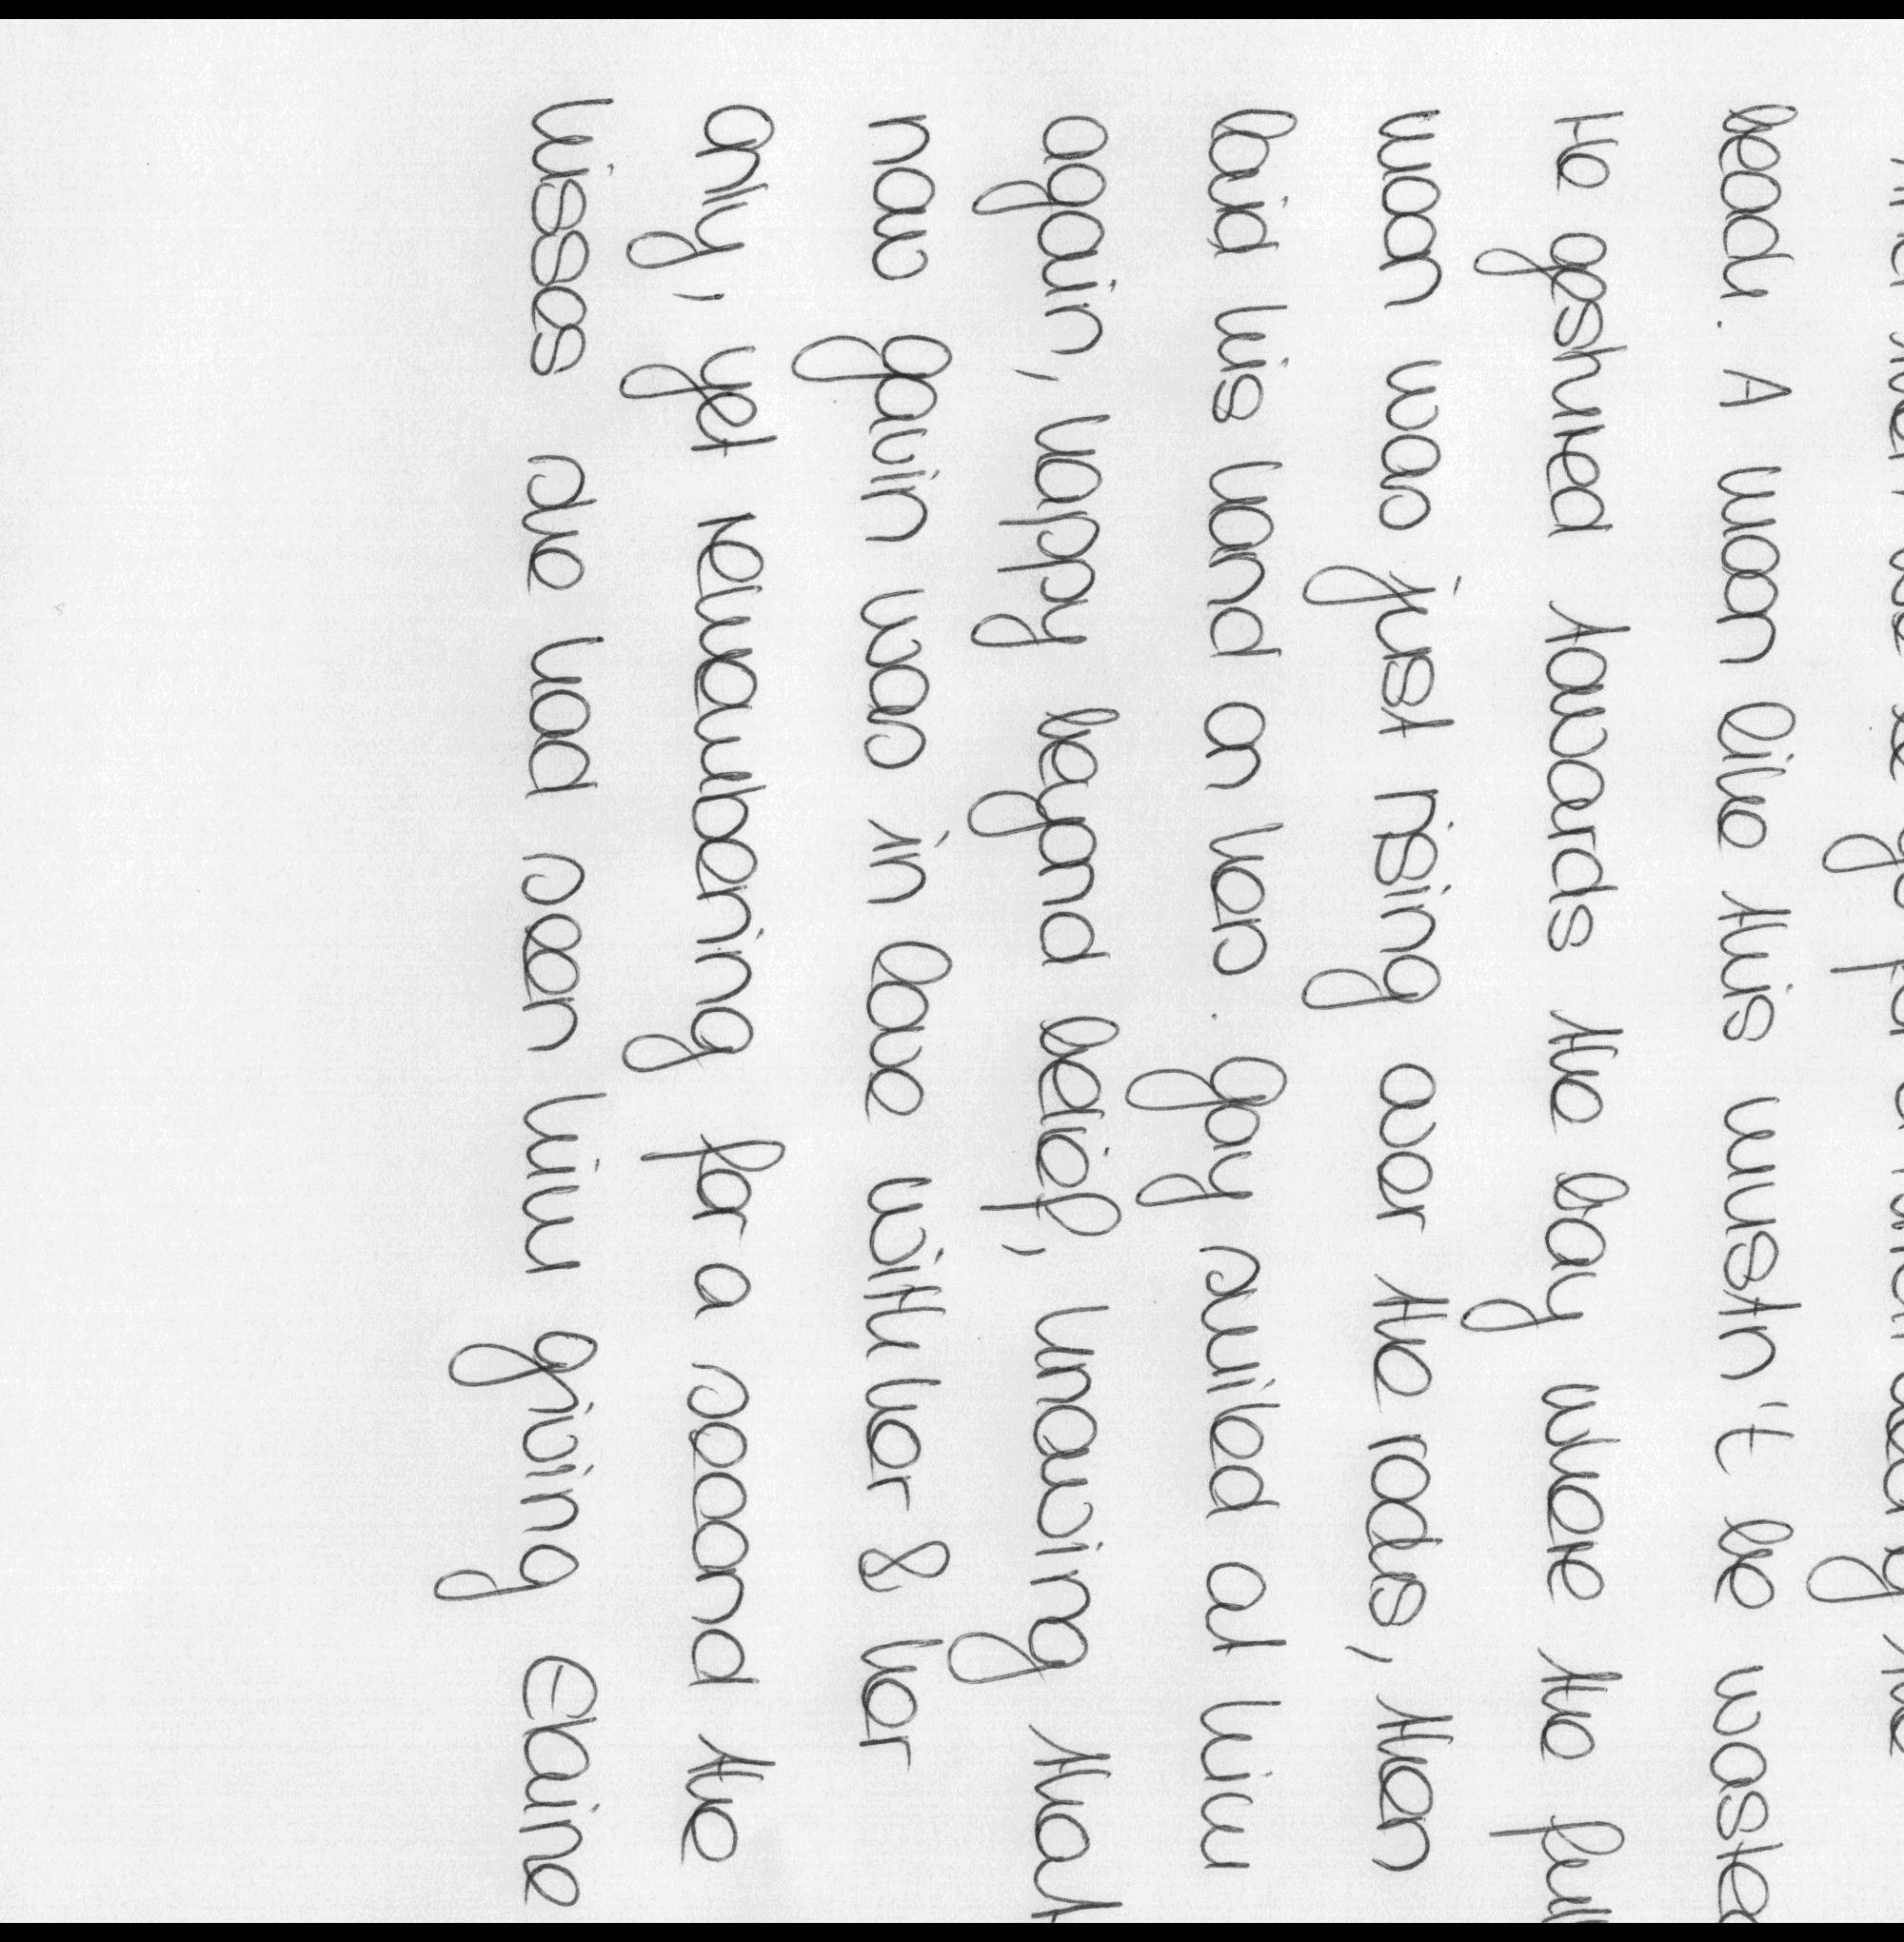 beach. A moon like this mustn't be waste
He gestured towards the bay where the full
moon was just rising over the rocks, then
laid his hand on hers. Gay smiled at him
again, happy beyond belief, knowing that
now Gavin was in love with her & her
only, yet remembering for a second the
kisses she had seen him giving Elaine